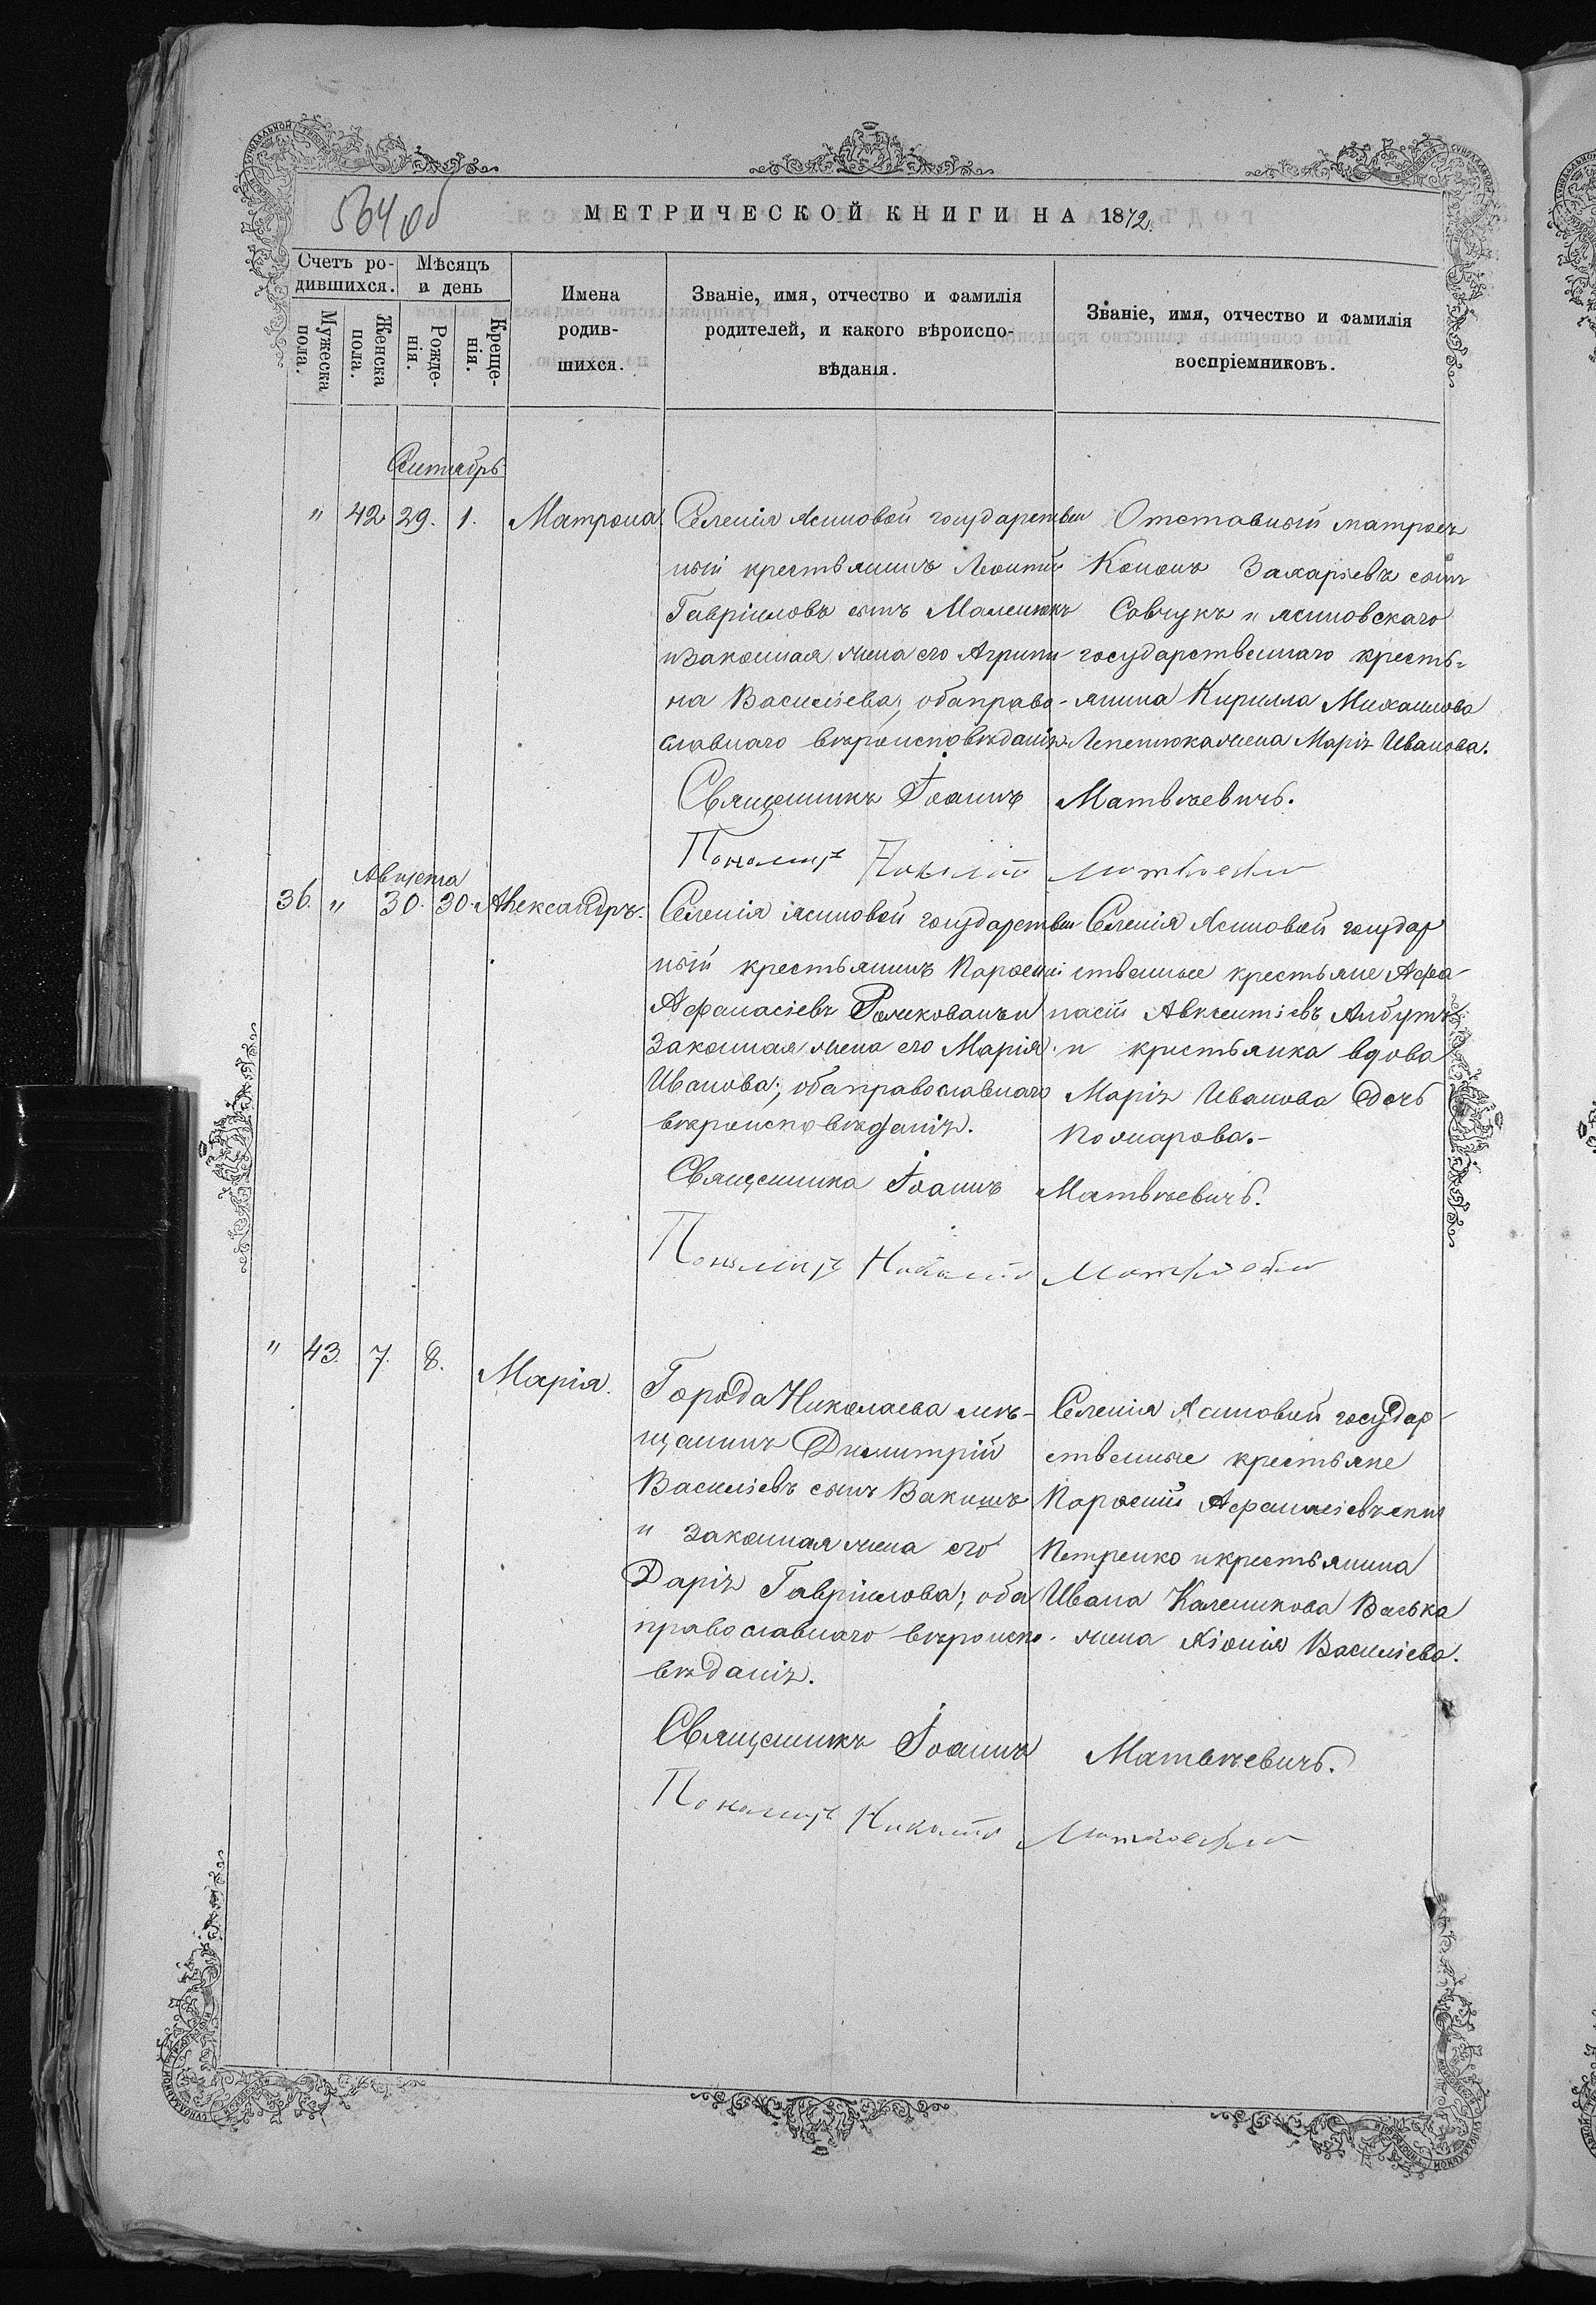 564 об
МЕТРИЧЕСКОЙ КНИГИ НА 1872.
Счетъ ро-
дившихся.
Мѣсяцъ
и день
Мужеска
пола.
Женска
пола.
Рожде-
нія.
Креще-
нія.
Имена
родив-
шихся.
Званіе, имя, отчество и фамилія
родителей, и какого вѣроиспо-
вѣданія.
Званіе, имя, отчество и фамилія
воспріемниковъ.
Сентябрь
" 42 29. 1. Матрона
Селенія Ясиновой государствен
ный крестьянинъ Леонтій
Гавріиловъ сынъ Маленюкъ
и законная жена его Агрипи
на Василіева; оба право-
славнаго вѣроисповѣданія.
Отставный матрозъ
Кононъ Захаріевъ сынъ
Савчукъ и ясиновскаго
государственнаго кресть=
янина Кирилла Михаилова
Лепенюка жена Марія Иванова.
Священникъ Іоаннъ Матвѣевичъ.
Пономарь
Августа
36. " 30. 30. Александръ.
Селенія Ясиновой государствен
ный крестьянинъ Парѳеній
Аѳанасіевъ
законная жена его Марія
Иванова; оба православнаго
вѣроисповѣданія.
Селенія Ясиновой государ
ственные крестьяне Аѳа-
насій Авксентіевъ
и крестьянка вдова
Марія Иванова дочь
Пожарова.-
Священникъ Іоаннъ Матвѣевичъ.
Пономарь
" 43. 7. 8. Марія.
Города Николаева мѣ-
щанинъ Димитрій
Василіевъ сынъ
и законная жена его
Дарія Гавріилова; оба
православнаго вѣроиспо-
вѣданія.
Селенія Ясиновой государ-
ственные крестьяне
Парѳеній Аѳанасіевъ сынъ
Петренко и крестьянина
Ивана Каленикова Васька
жена Хіонія Василіева.
Священникъ Іоаннъ Матвѣевичъ.
Пономарь